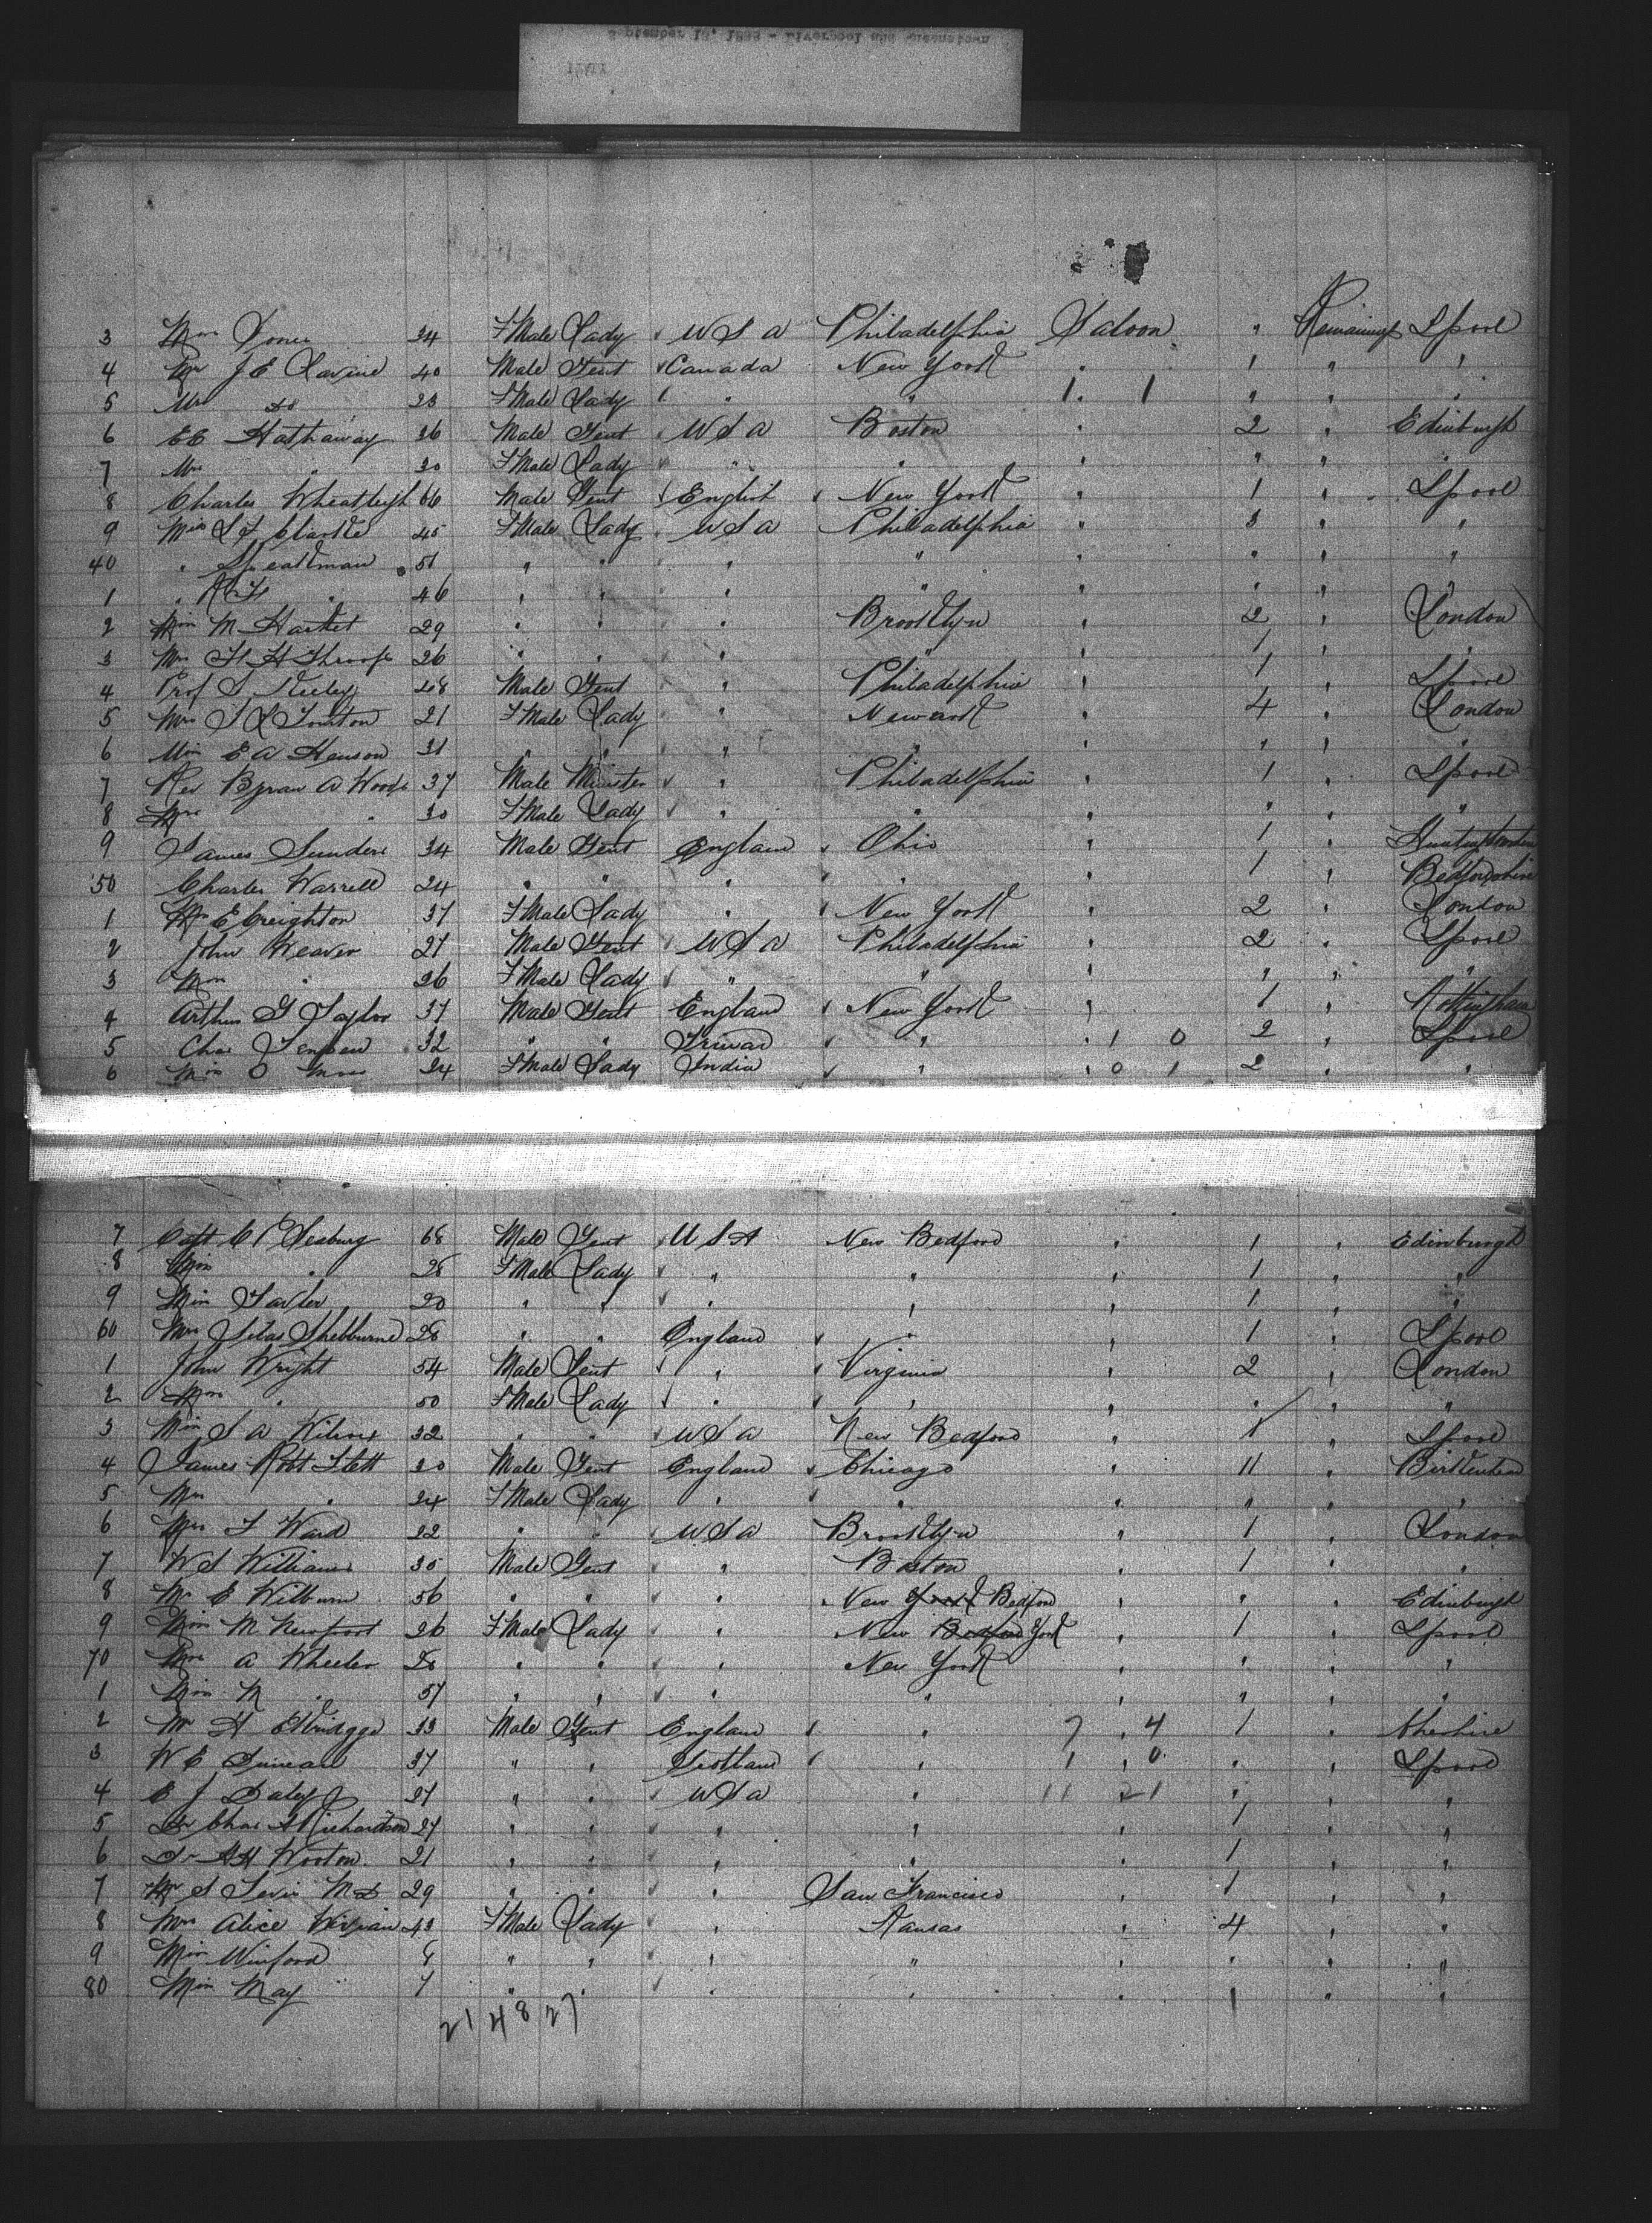 3 Mrs Jones 24 FMale Lady U S A Philadelphia Saloon " Remaining Lpool
4 Mr J E Lavine 40 Male Gent Canada New York " 1 " "
5 Mrs do 23 FMale Lady " " 1 . 1 " " "
6 E E Hathaway 36 Male Gent U S A Boston " 2 " Edinburgh
7 Mrs " 30 FMale Lady " " " " " "
8 Charles Wheatleigh 66 Male Gent English New York " 1 " Lpool
9 Miss Clarke 45 FMale Lady U S A Philadelphia " 3 " "
40 " Speakman 51 " " " " " " " "
1 " " 46 " " " " " " " "
2 Miss M 29 " " " Brooklyn " 2 " London
3 Mrs Throop 26 " " " " " 1 " "
4 Prof Keeley 48 Male Gent " Philadelphia " 1 " Lpool
5 Mrs 21 FMale Lady " Newark " 4 " London
6 Miss E A Henson 31 " " " " " " " "
7 Rev Byran A Woods 37 Male Minister " Philadelphia " 1 " Lpool
8 Mrs " 30 FMale Lady " " " " " "
9 James 34 Male Gent England Ohio " 1 "
50 Charles Warrell 24 " " " " " 1 " Bedfordshire
1 E Creighton 37 FMale Lady " New York " 2 " London
2 John Weaver 27 Male Gent U S A Philadelphia " 2 " Lpool
3 Mrs " 26 FMale Lady " " " " " "
4 Arthur G Taylor 37 Male Gent England New York " 1 " Nottingham
5 Chas Jensen 32 " " " " 1 0 2 " Lpool
6 Miss 24 FMale Lady India " " 0 1 2 " "
7 Capt C P Seabury 68 Male Gent U S A New Bedford " 1 " Edinburgh
8 Miss " 28 FMale Lady " " " 1 " "
9 Miss 20 " " " " " 1 " "
60 Mrs Silas Shelburne 28 " " England " " 1 " Lpool
1 John Wright 54 Male Gent " Virginia " 2 " London
2 Mrs " 50 FMale Lady " " " " " "
3 Miss S A Wilcox 32 " " U S A New Bedford " 1 " Lpool
4 James Robt 30 Male Gent England Chicago " 11 " Birkenhead
5 Mrs " 24 FMale Lady " " " " " "
6 Ward 22 " " U S A Brooklyn " 1 " London
7 W S Williams 35 Male Gent " Boston " 1 " "
8 Mr E 56 " " " New York Bedford " " " Edinburgh
9 Miss M 26 FMale Lady " New Bedford York " 1 " Lpool
70 Mrs A Wheeler 28 " " " New York " " " "
1 Miss M " 57 " " " " " " " "
2 Mr H 33 Male Gent England " 7 . 4 1 " Cheshire
3 W E Duncan 37 " " Scotland " 1 . 0 " " Lpool
4 E J Daley 27 " " U S A " 11 21 " " "
5 Dr Chas A Richardson 27 " " " " " 1 " "
6 Dr Wooton 21 " " " " " 1 " "
7 Mr S M D 29 " " " San Francisco " 1 " "
8 Mrs Alice Vivian 43 FMale Lady " Kansas " 4 " "
9 Miss Winford 8 " " " " " " " "
80 Miss May 7 " " " " " 1 " "
21 48 27